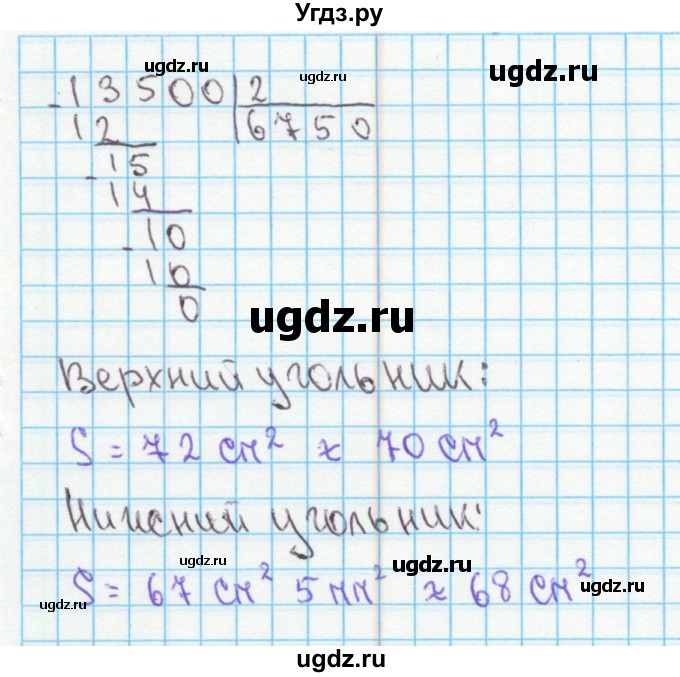 Угдз.ру
ugdz.ru ugdz.ru ugdz.ru
-13500|2
12 |6750
ugdz.ru
-15
14
-10
10
0
ugdz.ru
Верхний угольник:
S = 72 см² ≈ 70 см²
Нижний угольник:
ugdz.ru ugdz.ru
S = 67 см² 5 мм² ≈ 68 см²
ugdz.ru ugdz.ru ugdz.ru
ugdz.ru